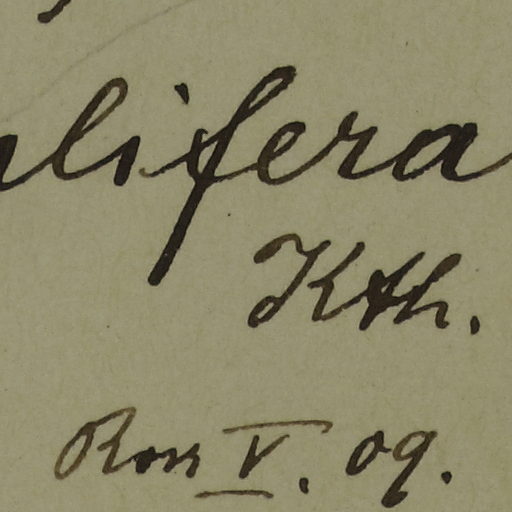 lifera
Kth.
Ross V. 09.